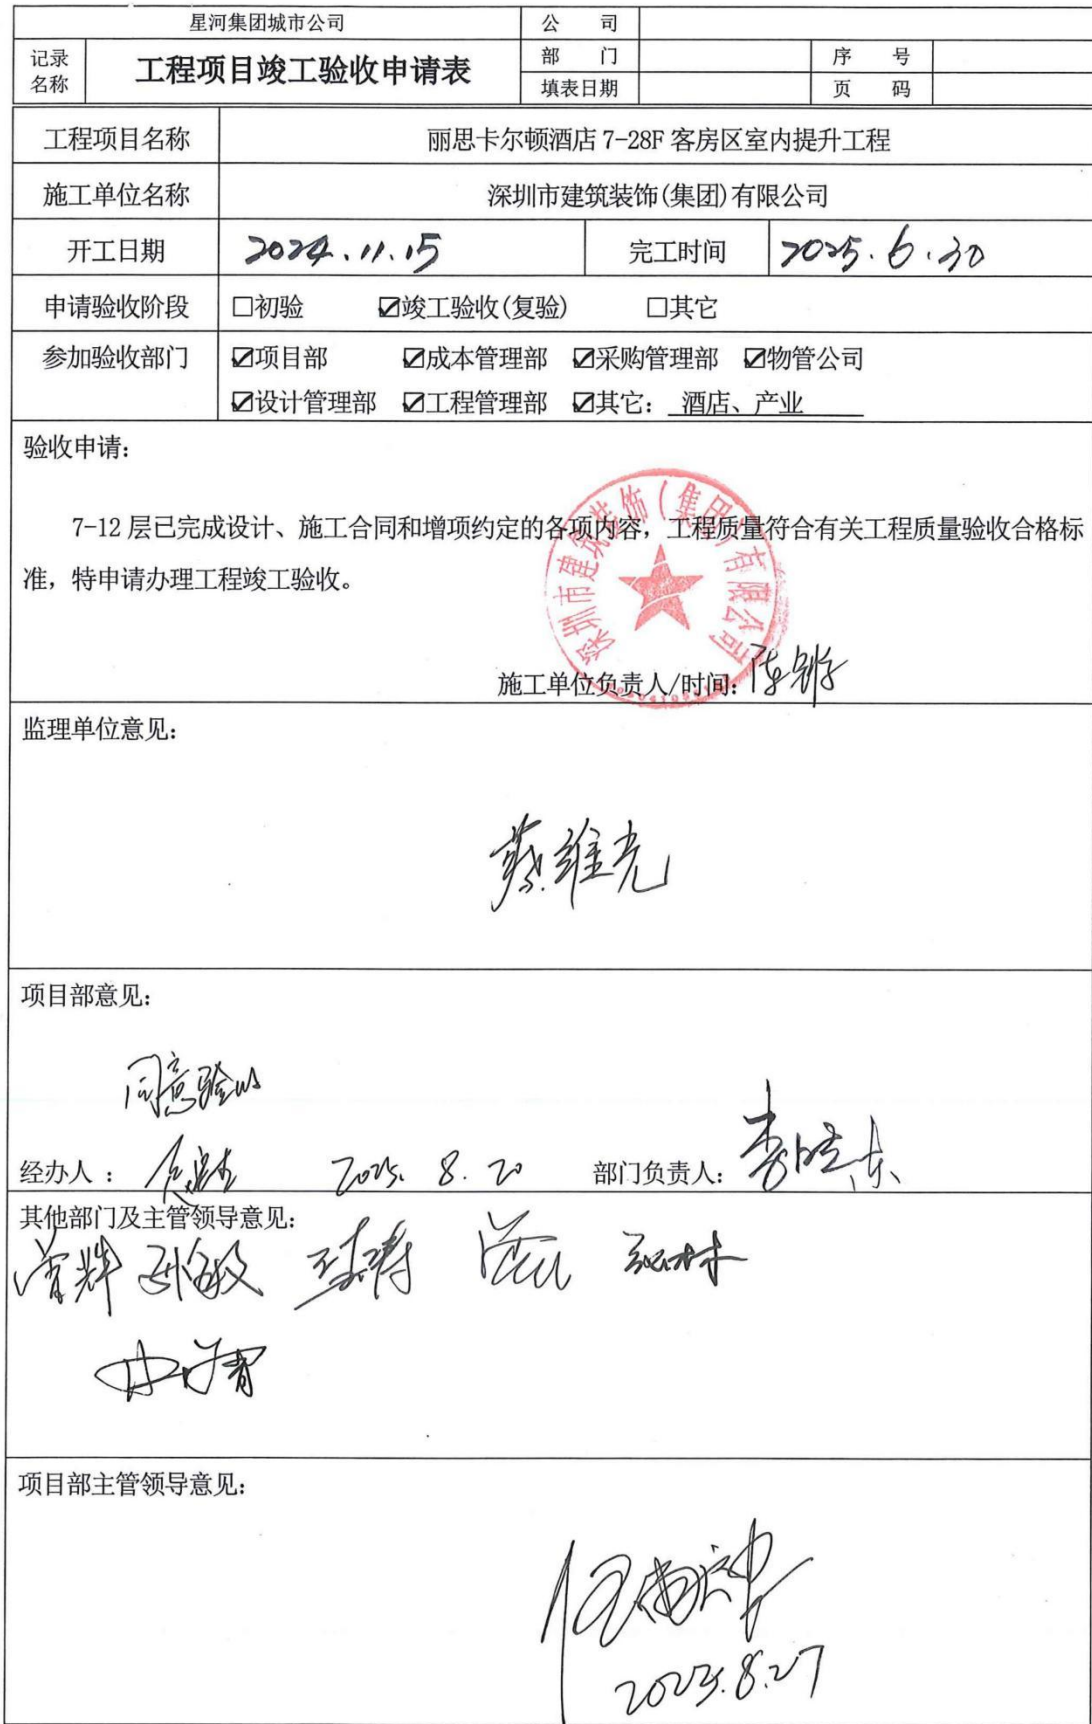 星河集团城市公司
公 司
记录名称
工程项目竣工验收申请表
部 门
序 号
填表日期
页 码
工程项目名称
丽思卡尔顿酒店 7-28F 客房区室内提升工程
施工单位名称
深圳市建筑装饰(集团)有限公司
开工日期
2024.11.15
完工时间
2025.6.30
申请验收阶段
□初验 ☑竣工验收(复验) □其它
参加验收部门
☑项目部 ☑成本管理部 ☑采购管理部 ☑物管公司
☑设计管理部 ☑工程管理部 ☑其它: 酒店、产业
验收申请:
7-12 层已完成设计、施工合同和增项约定的各项内容,工程质量符合有关工程质量验收合格标
准,特申请办理工程竣工验收。
深圳市建筑装饰(集团)有限公司
施工单位负责人/时间:
监理单位意见:
蔡维光
项目部意见:
同意验收
经办人 : 2025. 8. 20 部门负责人:
其他部门及主管领导意见:
项目部主管领导意见:
2025.8.27